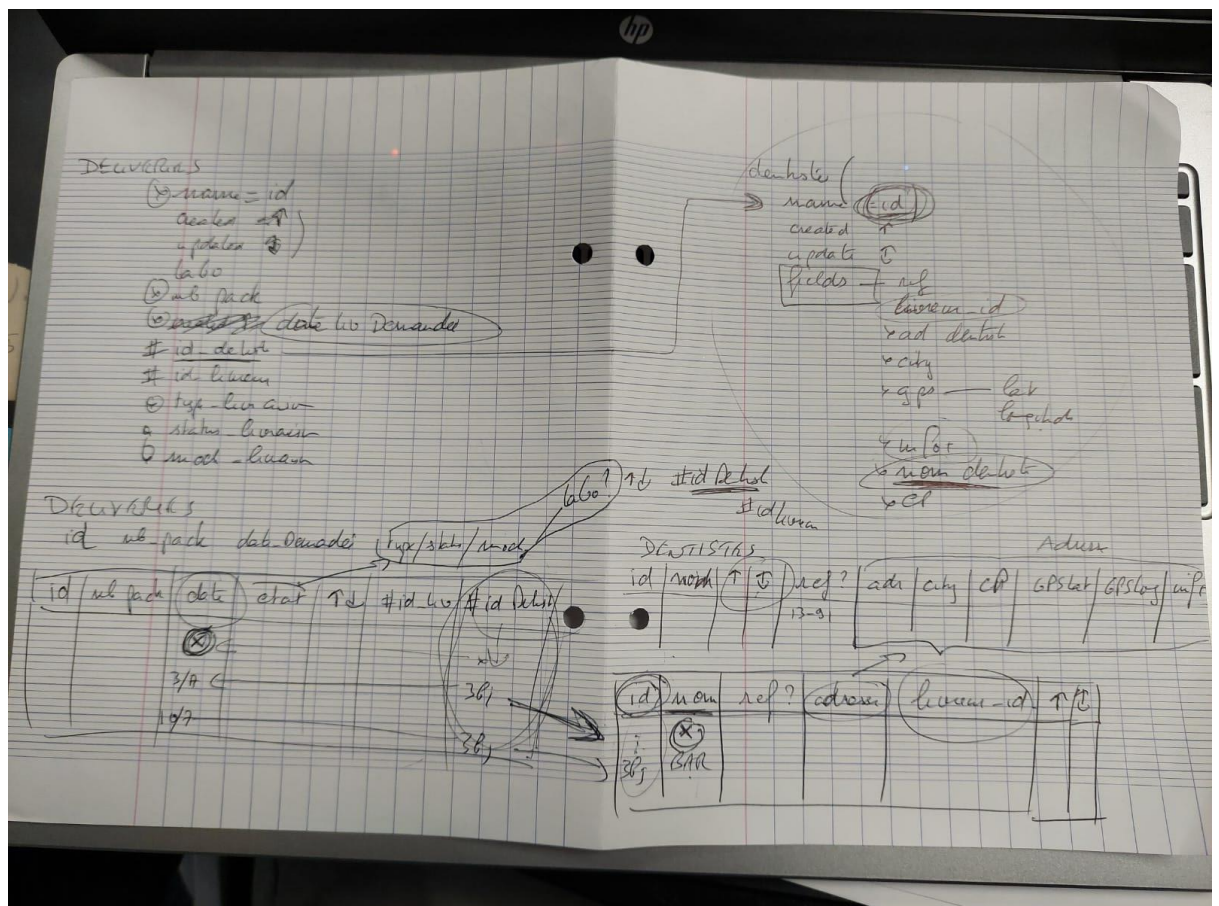 hp
DELIVERIES
name = id
created ↑
updated
labo
nb pack
date liv Demandée
# id_dentist
# id_livreur
type_livraison
status_livraison
mod_livraison
dentiste
name = id
created ↑
update ↕
fields ref
livreur_id
ad dentist
city
gps lat
longitude
infos
nom dentiste
CP
labo? ↑↓ #id Dentist
#id livreur
DELIVERIES
id nb_pack date_Demandée type/status/mod
id nb pack date etat ↑↓ #id_liv #id Dentist
3/A
3bj
10/7
3bj
DENTISTES Adresse
id nom ↑ ↕ ref? adr city CP GPSlat GPSlong info
id nom ref? adresse livreur_id ↑ ↕
3bj BAR